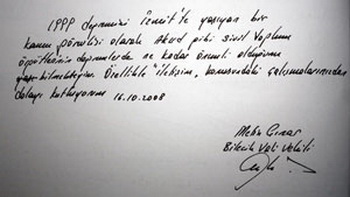 1999 depremini İzmit'te yaşayan bir
kamu görevlisi olarak Akut gibi sivil toplum
örgütlerinin depremlerde ne kadar önemli olduğunu
bilmekteyim. Özellikle "iletişim" konusundaki çalışmalarınızdan
dolayı kutluyorum 16.10.2008
Metin Çınar
Bilecik Vali Vekili